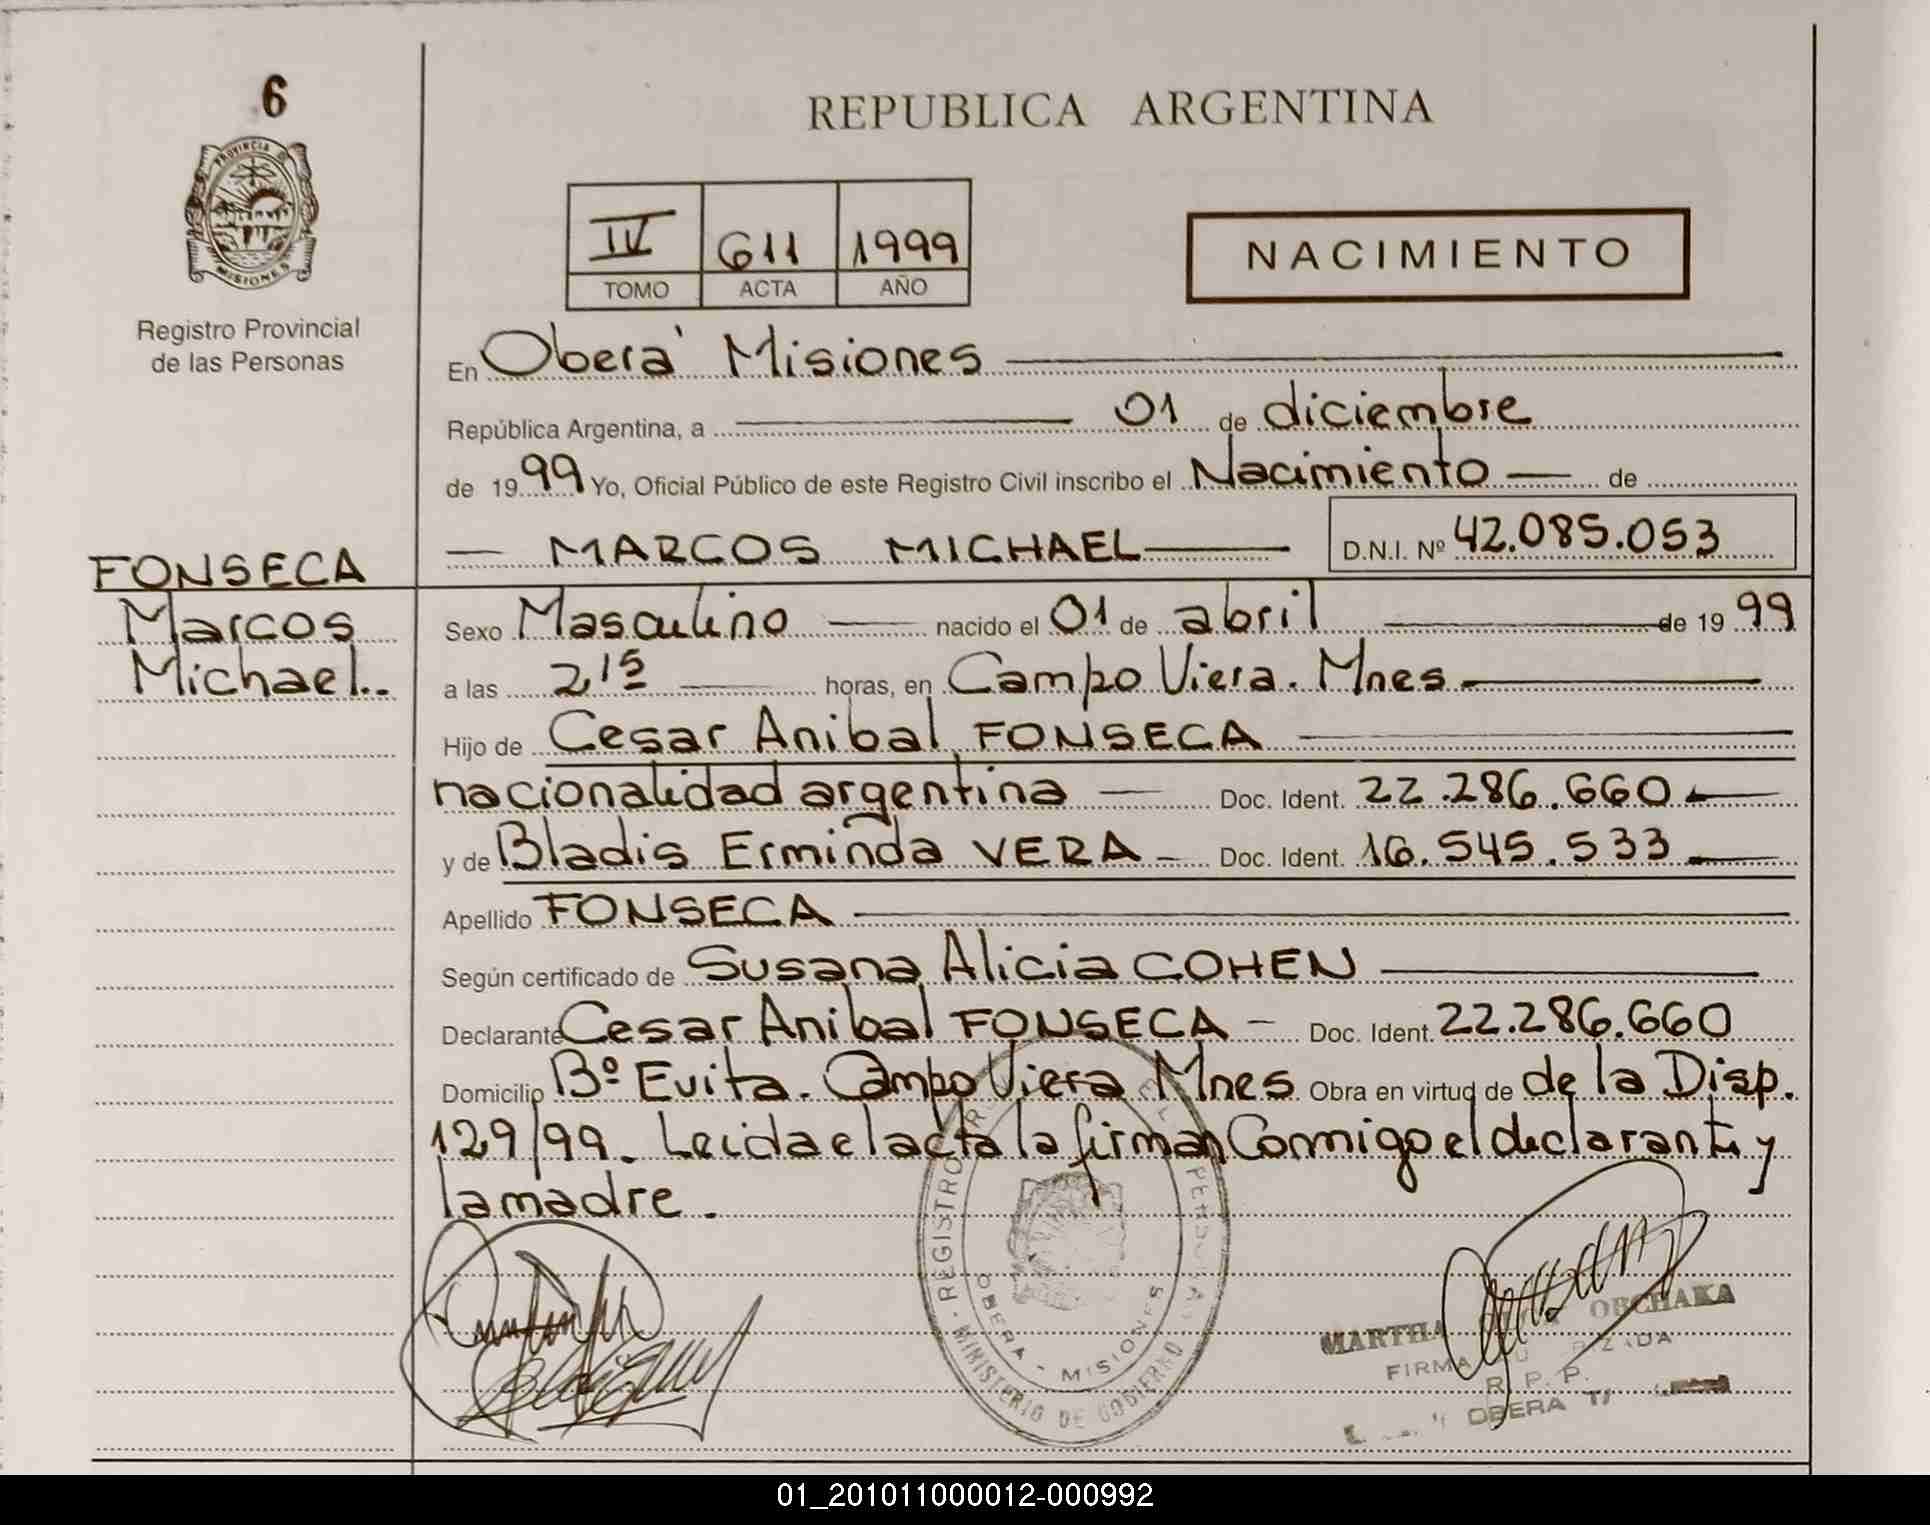 6
PROVINCIA
MISIONES
Registro Provincial
de las Personas
REPUBLICA ARGENTINA
IV 611 1999
TOMO ACTA AÑO
NACIMIENTO
En Oberá Misiones
República Argentina, a 01 de diciembre
de 1999 Yo, Oficial Público de este Registro Civil inscribo el Nacimiento de
MARCOS MICHAEL D.N.I. Nº 42.085.053
FONSECA
Marcos
Michael.
Sexo Masculino nacido el 01 de abril de 1999
a las 2,15 horas, en Campo Viera. Mnes
Hijo de Cesar Anibal FONSECA
nacionalidad argentina Doc. Ident. 22.286.660
y de Bladis Erminda VERA Doc. Ident. 16.545.533
Apellido FONSECA
Según certificado de Susana Alicia COHEN
Declarante Cesar Anibal FONSECA Doc. Ident. 22.286.660
Domicilio Bº Evita. Campo Viera Mnes Obra en virtud de de la Disp.
129/99. Leida el acta la firman Conmigo el declarante y
la madre.
REGISTRO
OBERA - MISIONES
MINISTERIO DE GOBIERNO
MARTHA OBCHAKA
FIRMA
R. P. P.
OBERA
01_201011000012-000992